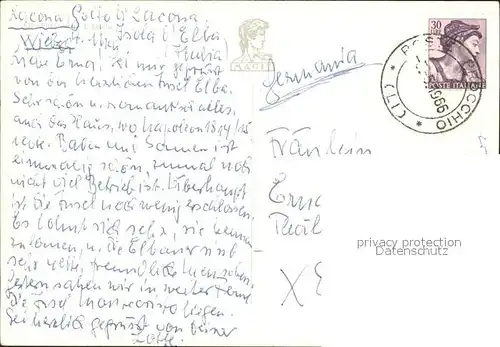 Lacona, Golfo di Lacona,
Isola d'Elba
Italia
Liebe Erna! Sei mir gegrüßt
von der herrlichen Insel Elba.
Sehr schön u. romantisch alles,
auch das Haus, wo Napoleon 1814/15
lebte. Baden und Sonnen ist
einmalig schön, zumal noch
nicht viel Betrieb ist. Überhaupt
ist die Insel noch wenig erschlossen.
Es lohnt sich sehr, sie kennen
zu lernen, u. die Elbaner sind
sehr nette, freundliche Menschen.
Gestern sahen wir in weiter Ferne
die Insel Montecristo liegen.
Sei herzlich gegrüßt von Deiner
Lotte.
Germania
30
POSTE ITALIANE
Fräulein
Erna
privacy protection
Datenschutz